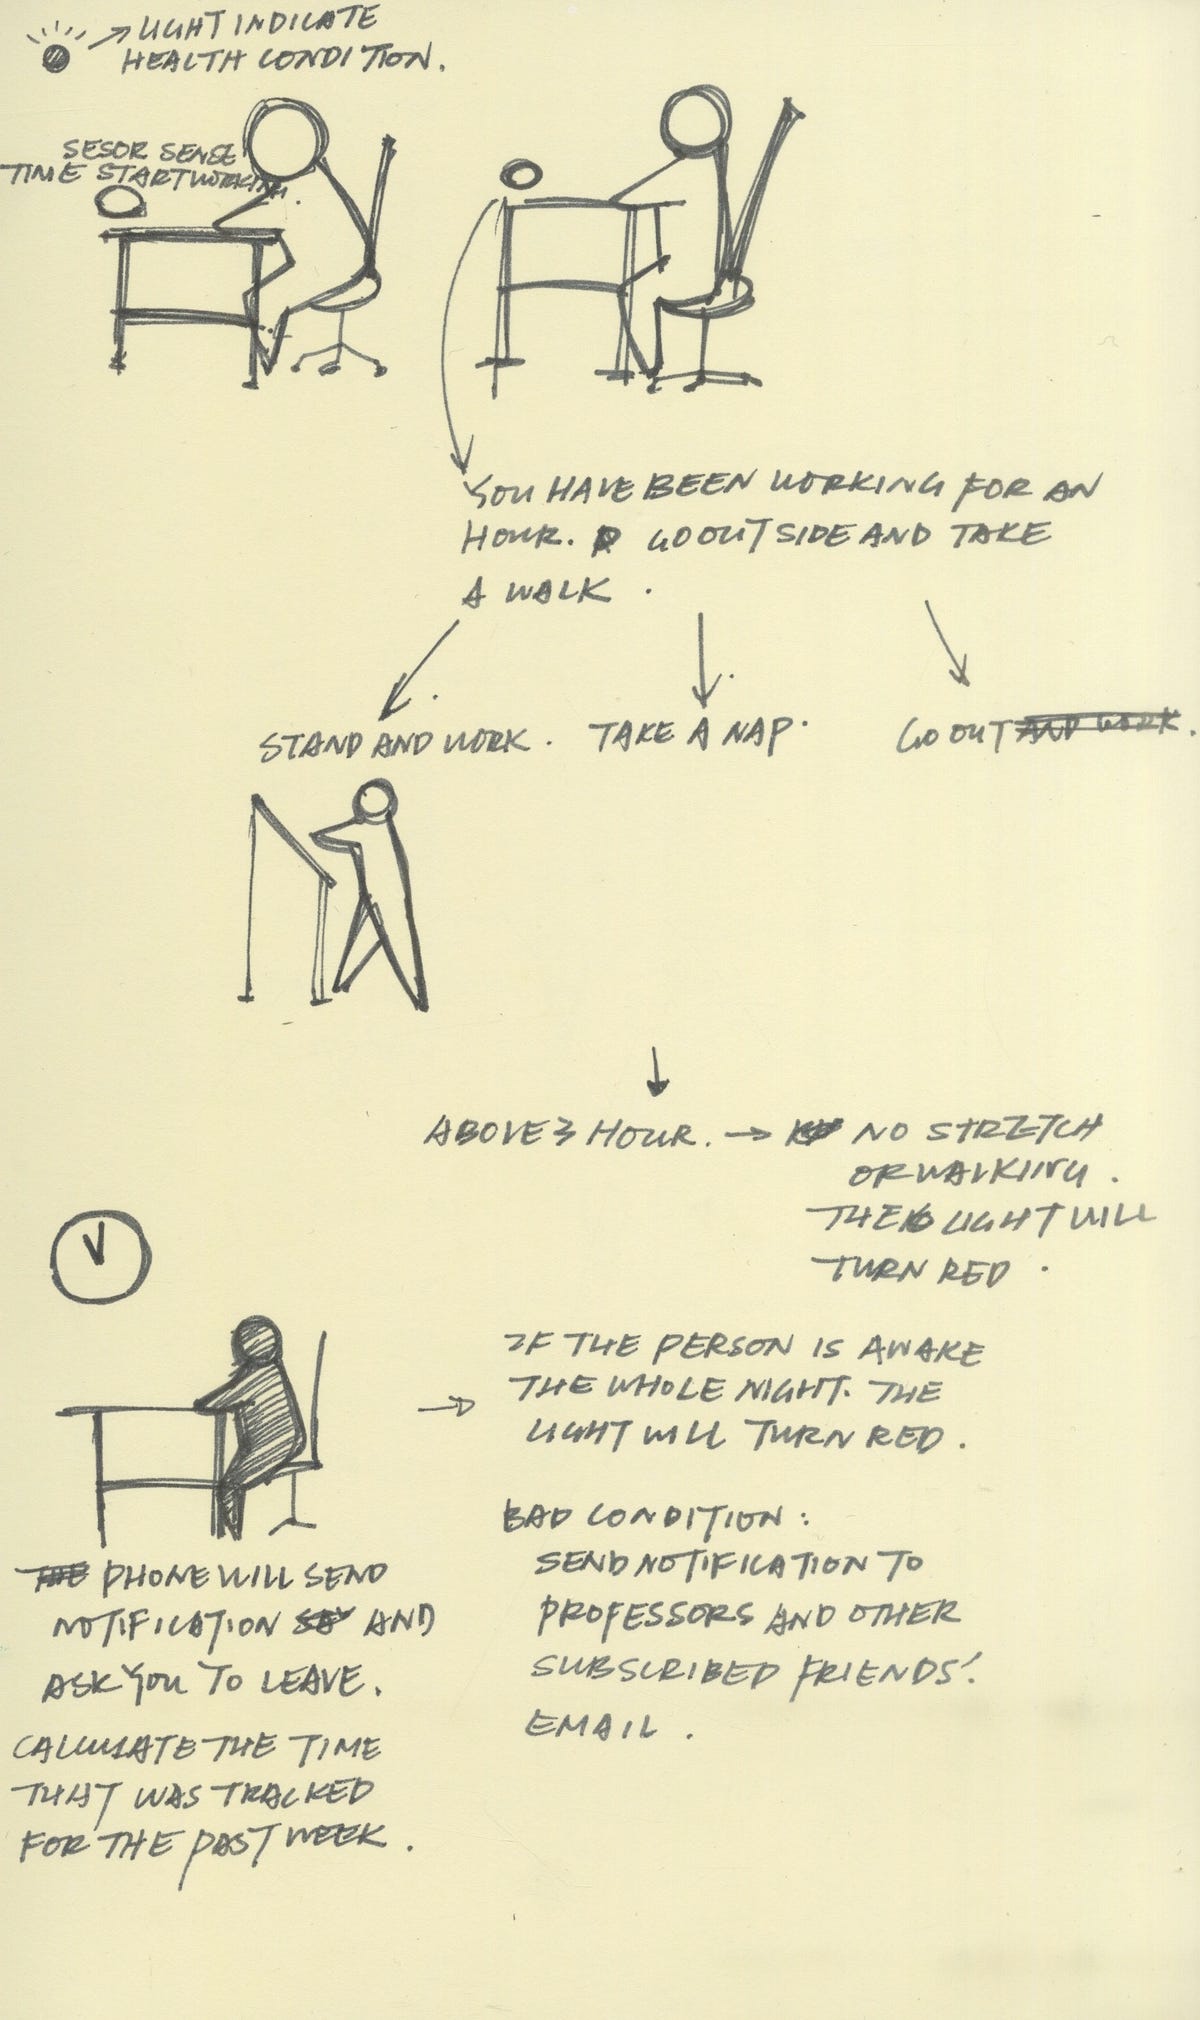 LIGHT INDICATE
HEALTH CONDITION.
SESOR SENSE
TIME START WORKING.
YOU HAVE BEEN WORKING FOR AN
HOUR. GO OUT SIDE AND TAKE
A WALK.
STAND AND WORK. TAKE A NAP. GO OUT AND WORK.
ABOVE 3 HOUR. → NO STRETCH
OR WALKIING.
THE LIGHT WILL
TURN RED.
IF THE PERSON IS AWAKE
THE WHOLE NIGHT. THE
LIGHT WILL TURN RED.
BAD CONDITION:
SEND NOTIFICATION TO
PROFESSORS AND OTHER
SUBSCRIBED FRIENDS'.
EMAIL.
THE PHONE WILL SEND
NOTIFICATION AND
ASK YOU TO LEAVE.
CALCULATE THE TIME
THAT WAS TRACKED
FOR THE PAST WEEK.